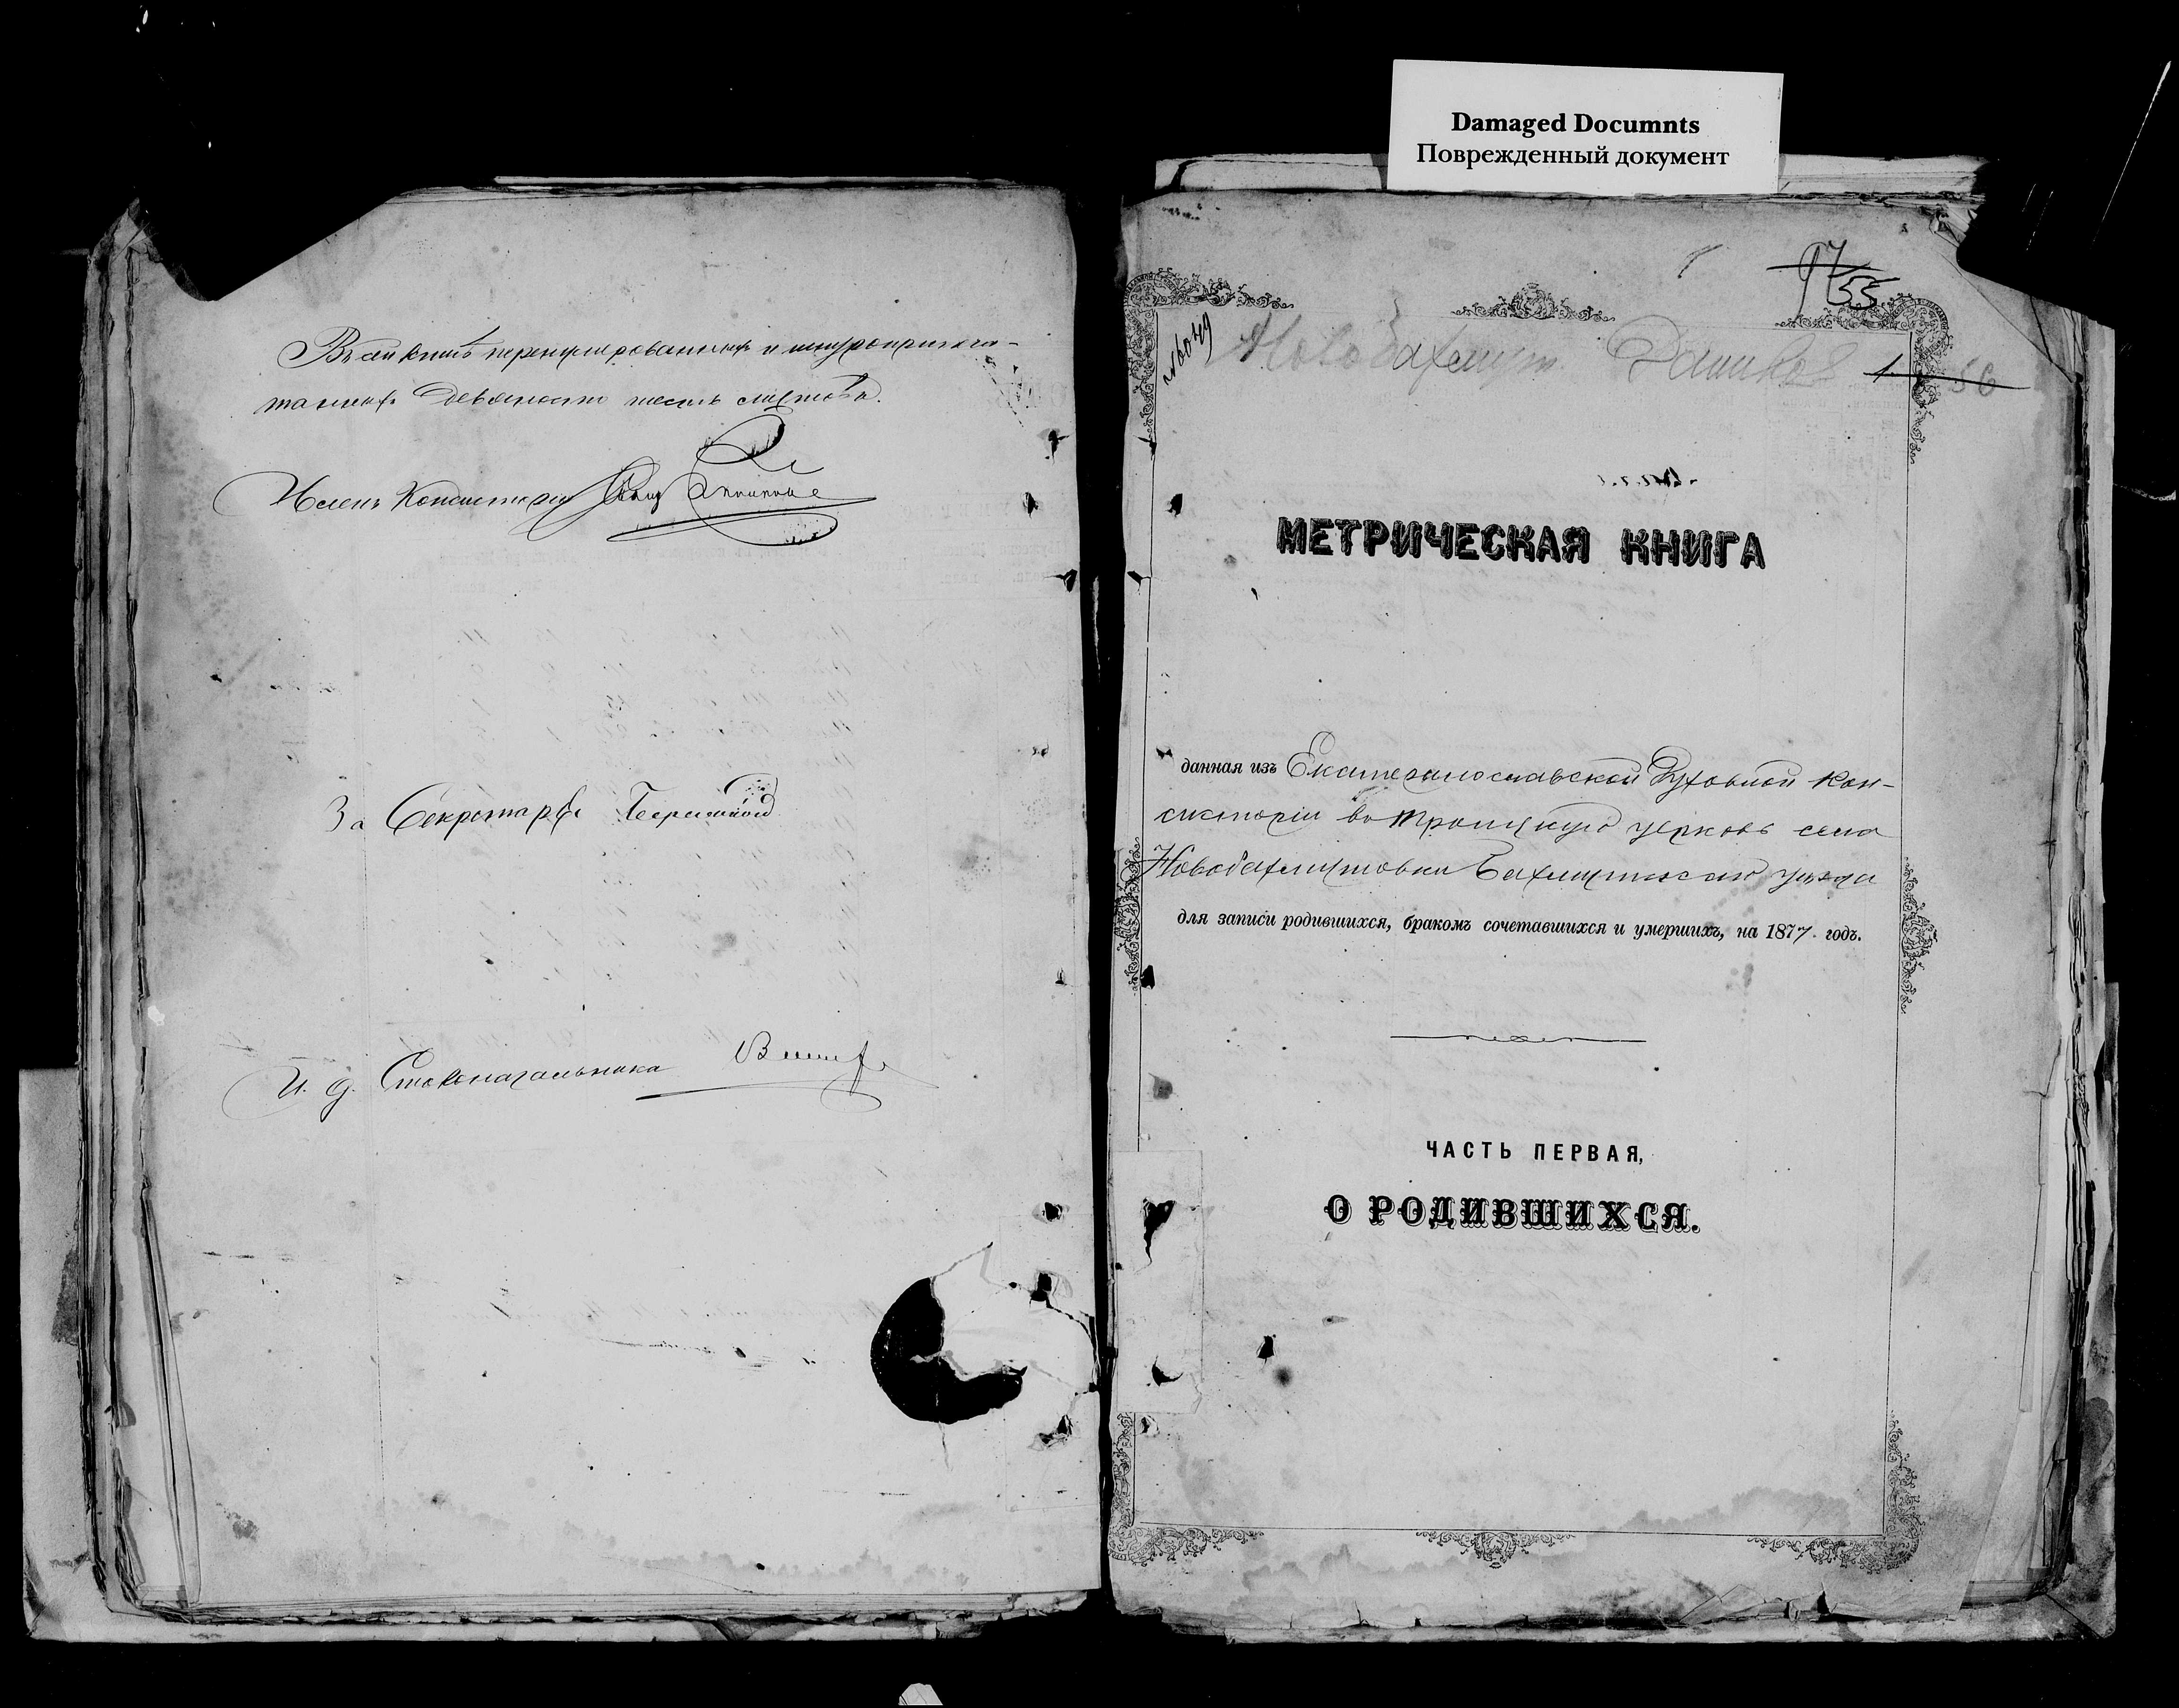 Damaged Documnts
Поврежденный документ
Въ сей книгѣ перенумерованныхъ и шнуроприпеча-
танныхъ девяносто шесть листовъ.
Членъ Консисторіи
За Секретаря
И. д. Столоначальника
97
55
№6049
Новобахмут.
1
56
МЕТРИЧЕСКАЯ КНИГА
данная изъ Екатеринославской Духовной Кон-
систоріи въ Троицкую церковь села
Новобахмутовки Бахмутскаго уѣзда
для записи родившихся, бракомъ сочетавшихся и умершихъ, на 1877 годъ.
ЧАСТЬ ПЕРВАЯ,
О РОДИВШИХСЯ.